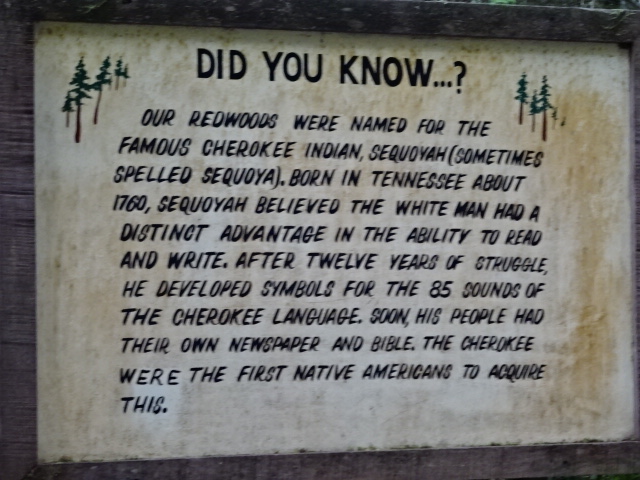 DID YOU KNOW...?
OUR REDWOODS WERE NAMED FOR THE
FAMOUS CHEROKEE INDIAN, SEQUOYAH (SOMETIMES
SPELLED SEQUOYA). BORN IN TENNESSEE ABOUT
1760, SEQUOYAH BELIEVED THE WHITE MAN HAD A
DISTINCT ADVANTAGE IN THE ABILITY TO READ
AND WRITE. AFTER TWELVE YEARS OF STRUGGLE,
HE DEVELOPED SYMBOLS FOR THE 85 SOUNDS OF
THE CHEROKEE LANGUAGE. SOON, HIS PEOPLE HAD
THEIR OWN NEWSPAPER AND BIBLE. THE CHEROKEE
WERE THE FIRST NATIVE AMERICANS TO ACQUIRE
THIS.